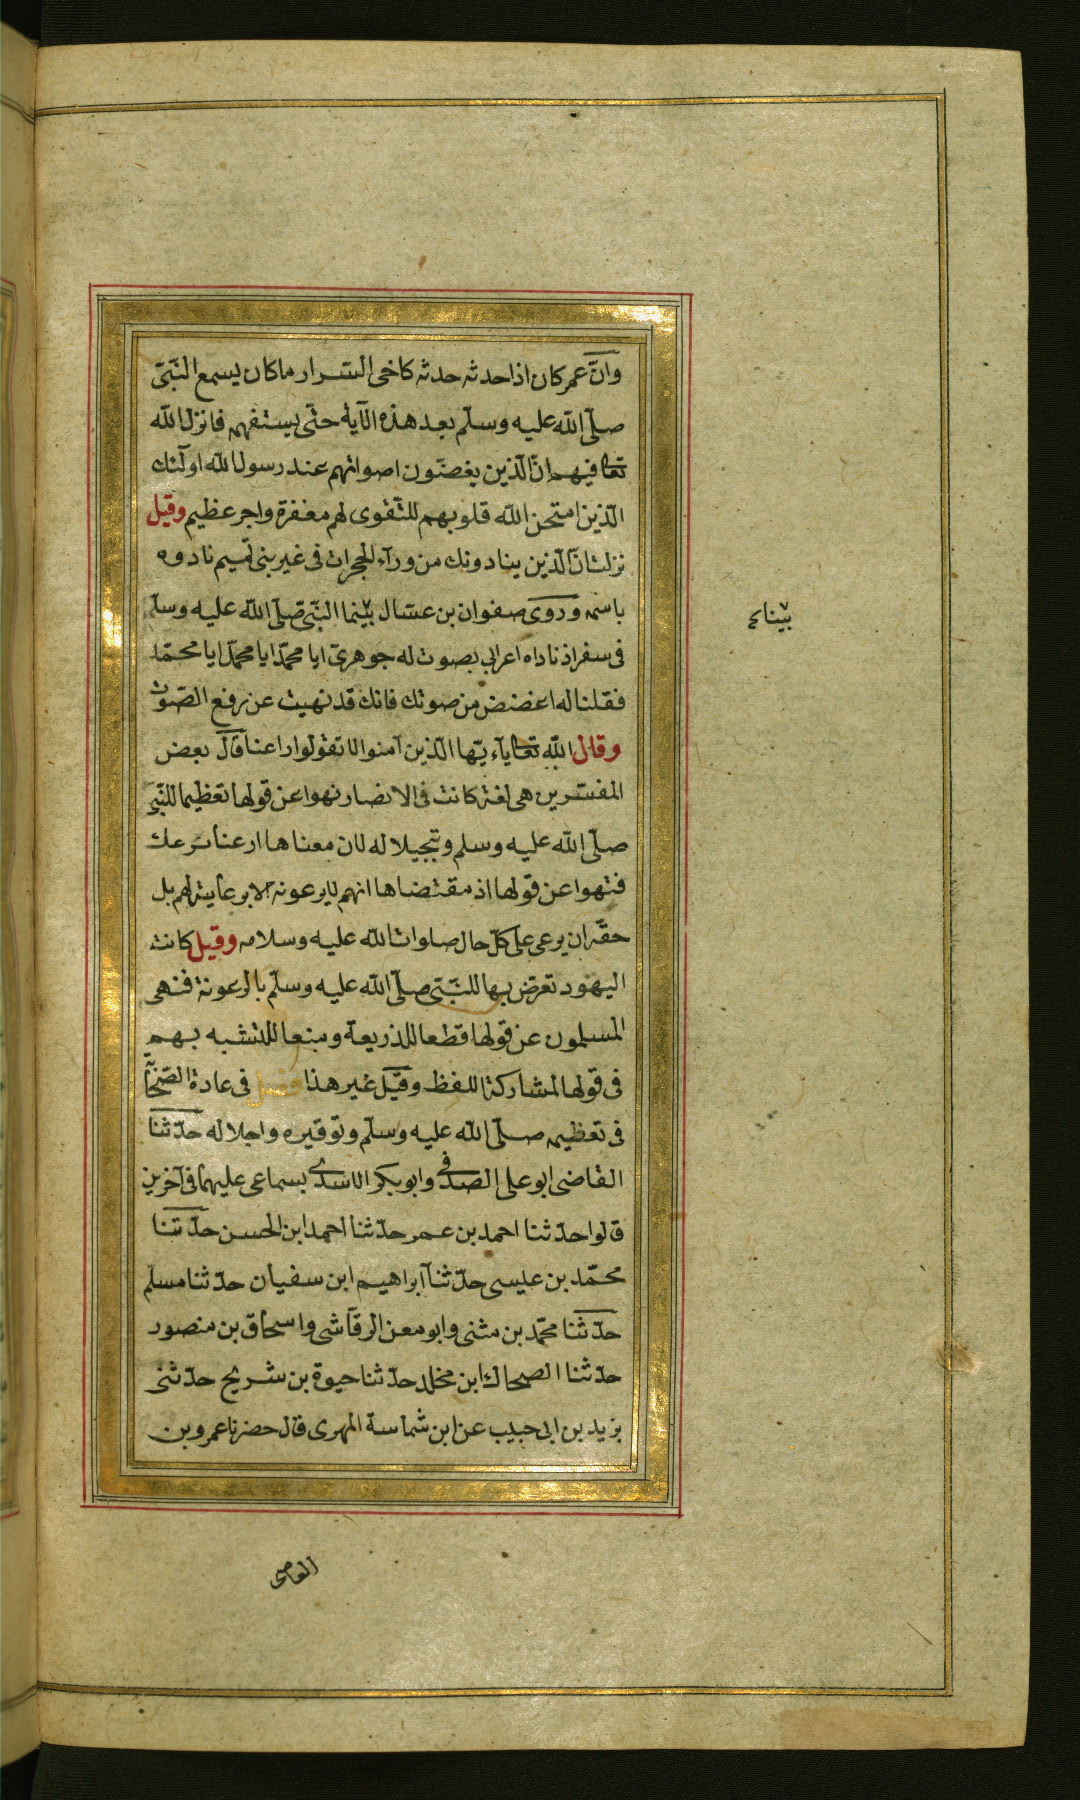 وانّ عمر كان اذا حدثه حدثه كاخى السّرار ما كان يسمع النّبىّ
صلّى اللّه عليه وسلّم بعد هذه الآية حتّى يستفهمه فانزل اللّه
تعا فيهم انّ الّذين يغضّون اصواتهم عند رسول اللّه اولئك
الّذين امتحن اللّه قلوبهم للتّقوى لهم مغفرة واجر عظيم وقيل
نزلت انّ الّذين ينادونك من ورآء الحجرات فى غير بنى تميم نادوه
باسمه وروى صفوان بن عسّال بينما النّبىّ صلّى اللّه عليه وسلّم
بيناء
فى سفر اذ ناداه اعرابى بصوت له جوهرىّ ايا محمّد ايا محمّد ايا محمّد
فقلنا له اغضض من صوتك فانك قد نهيت عن رفع الصّوت
وقال اللّه تعا يآء يّها الّذين آمنوا لا تقولوا راعنا قال بعض
المفسّرين هى لغة كانت فى الانصار نهوا عن قولها تعظيما للنّبىّ
صلّى اللّه عليه وسلم وتبجيلا له لان معناها ارعنا نرعك
فنهوا عن قولها اذ مقتضاها انهم لا يرعونه الا برعايته لهم بل
حقّه ان يرعى على كلّ حال صلوات اللّه عليه وسلامه وقيل كانت
اليهود تعرّض بها للنّبىّ صلّى اللّه عليه وسلّم بالرعونة فنهى
المسلمون عن قولها قطعا للذريعة ومنعا للتشبه بهم
فى قولها لمشاركة اللفظ وقيل غير هذا فصل فى عادة الصّحابة
فى تعظيمه صلّى اللّه عليه وسلّم وتوقيره واجلاله حدّثنا
القاضى ابو على الصدفى وابو بكر الاسدى بسماعى عليهما فى آخرين
قالوا حدّثنا احمد بن عمر حدّثنا احمد ابن الحسن حدّثنا
محمّد بن عيسى حدّثنا ابراهيم ابن سفيان حدّثنا مسلم
حدّثنا محمّد بن مثنى وابو معن الرقاشى واسحاق بن منصور
حدّثنا الضحاك ابن مخلد حدّثنا حيوة بن شريح حدّثنى
يزيد بن ابى حبيب عن ابن شماسة المهرى قال حضرنا عمرو بن
العاصى